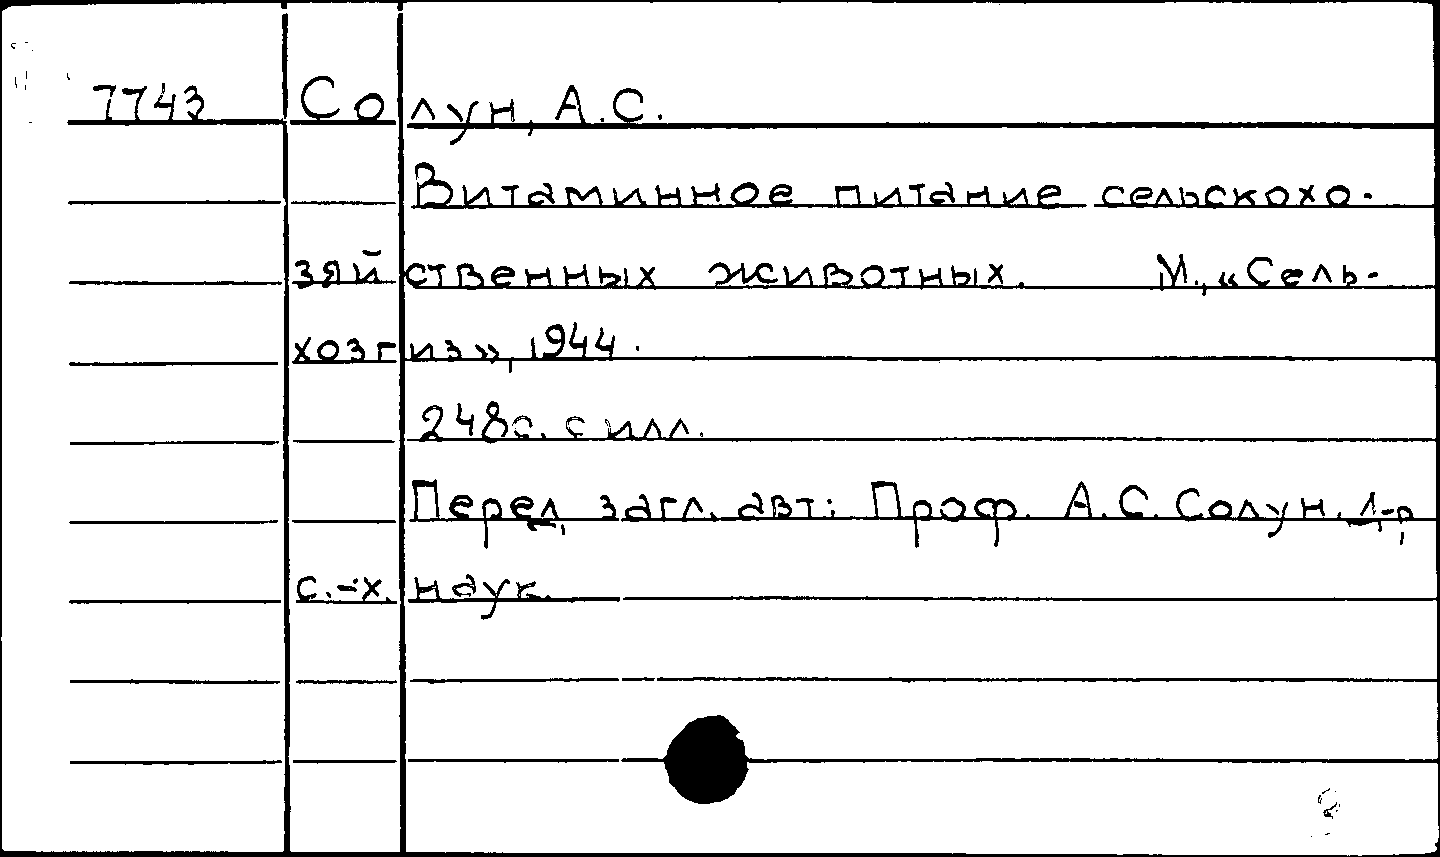 7743 Солун, А.С.
Витаминное питание сельскохо-
зяйственных животных. М., «Сель-
хозгиз», 1944.
248с. с илл.
Перед загл. авт: Проф. А.С. Солун, д-р
с.-х. наук.